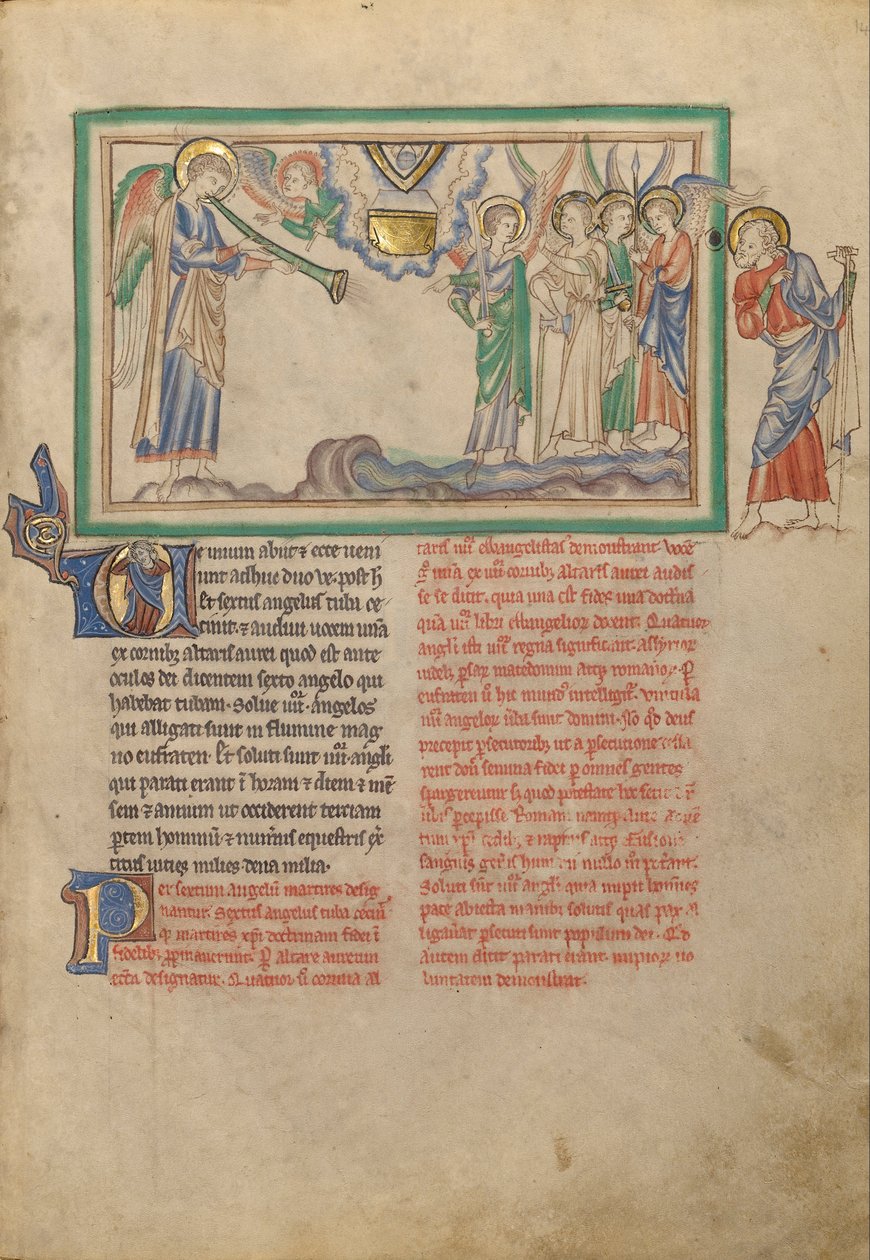 14
Ve unum abiit ⁊ ecce ueni
unt adhuc duo ve. post h̄
Et sextus angelus tuba ce
cinit. ⁊ audiui uocem unā
ex cornibꝫ altaris aurei quod est ante
oculos dei dicentem sexto angelo qui
habebat tubam. Solue iiiior. angelos
qui alligati sunt in flumine mag
no eufraten. Et soluti sunt iiiior. angli
qui parati erant ī horam ⁊ diem ⁊ mē
sem ⁊ annum ut occiderent terciam
partem hominū ⁊ numerus equestris ex̄
citus uicies milies dena milia.
Per sextum angelū martires desig
nantur. Sextus angelus tuba cecinit
martires xp̄i doctrinam fidei ī
fidelibꝫ Per altare aureum
ecc̄a designatur. Quatuor ū cornua al
taris iiiior euuangelistas demonstrant. Vocē
unā ex iiiior cornibꝫ altaris aurei audis
se se dicit. quia una est fides una doctrina
quā iiiior libri euuangeliorum docent. Quatuor
angli isti iiiior regna significant. assyriorum
persarum macedonum atqꝫ romanorum. Per
eufraten ū hic mundus intelligitur. Vincula
iiiior angelorum uerba sunt domini. Non quod deus
precepit persecutoribꝫ ut a persecutione cessa
rent donec semina fidei per omnes gentes
spargerentur sed quod potestatē hoc
ante
Fusionē
sanguinis generis humani nullo
Soluti sunt iiiior angli quia impii homines
pace abiecta manibus solutis quas pax al
ligauerat persecuti sunt populum dei. Quod
autem dicit parati erant. impiorum uo
luntatem demonstrat.